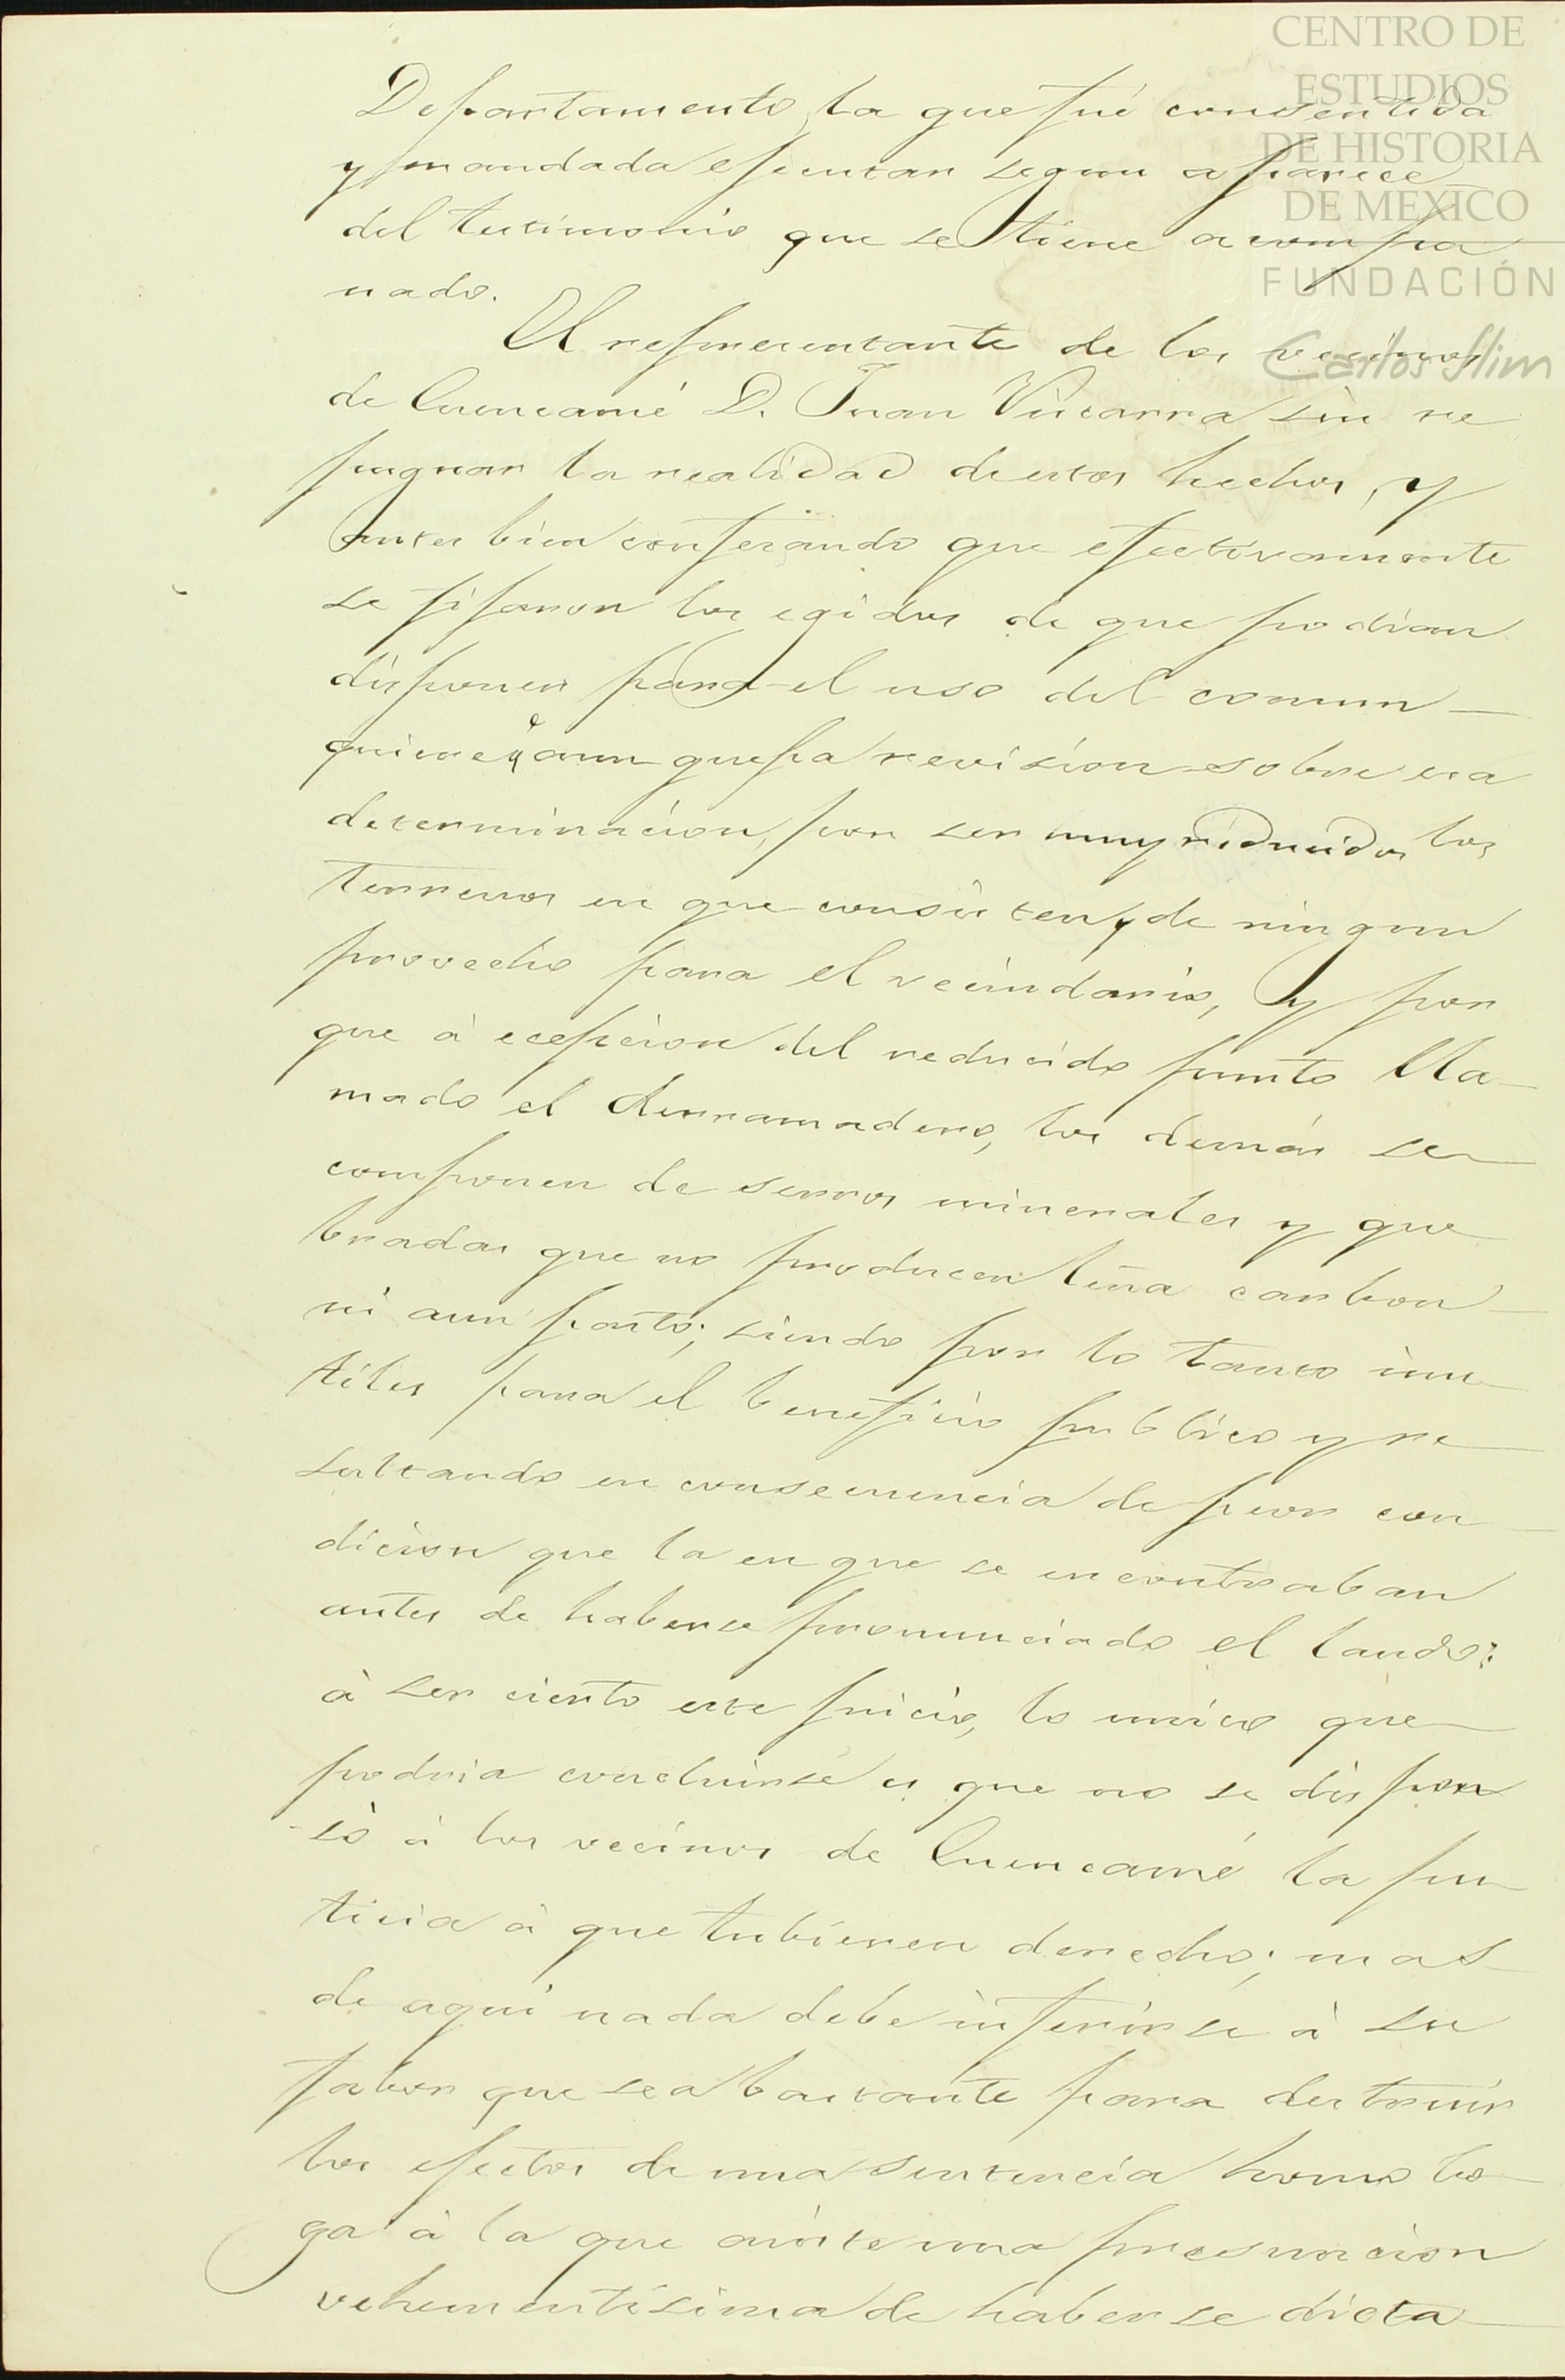 CENTRO DE
ESTUDIOS
DE HISTORIA
DE MEXICO
FUNDACIÓN
Carlos Slim
Departamento, la que fué consentida
y mandada ejecutar segun aparece
del testimonio que se tiene acompa
nado.
El representante de los vecinos
de Cuencamé D. Juan Viscarra sin re
pugnar la realidad de estos hechos, y
antes bien confesando que efectivamente
se fijaron los egidos de que podian
disponer para el uso del comun
quiere q̃ aun quepa revision sobre esa
determinacion, por ser muy reducidos los
terrenos en que consisten y de ningun
provecho para el vecindario, y por
que à ecepcion del reducido punto lla
mado el derramadero, los demás se
componen de serros minerales y que
bradas que no producen leña carbon
ni aun pasto; siendo por lo tanto inu
tiles para el beneficio publico y re
sultando en consecuencia de peor con
dicion que la en que se encontraban
antes de haberse pronunciado el laudo:
à ser cierto este juicio, lo unico que
podria concluirse es que no se dispen
só à los vecinos de Cuencamé la jus
ticia à que tubieren derecho; mas
de aqui nada debe inferirse à su
fabor que sea bastante para destruir
los efectos de una sentencia homolo
ga à la que asiste una presuncion
vehementísima de haberse dicta